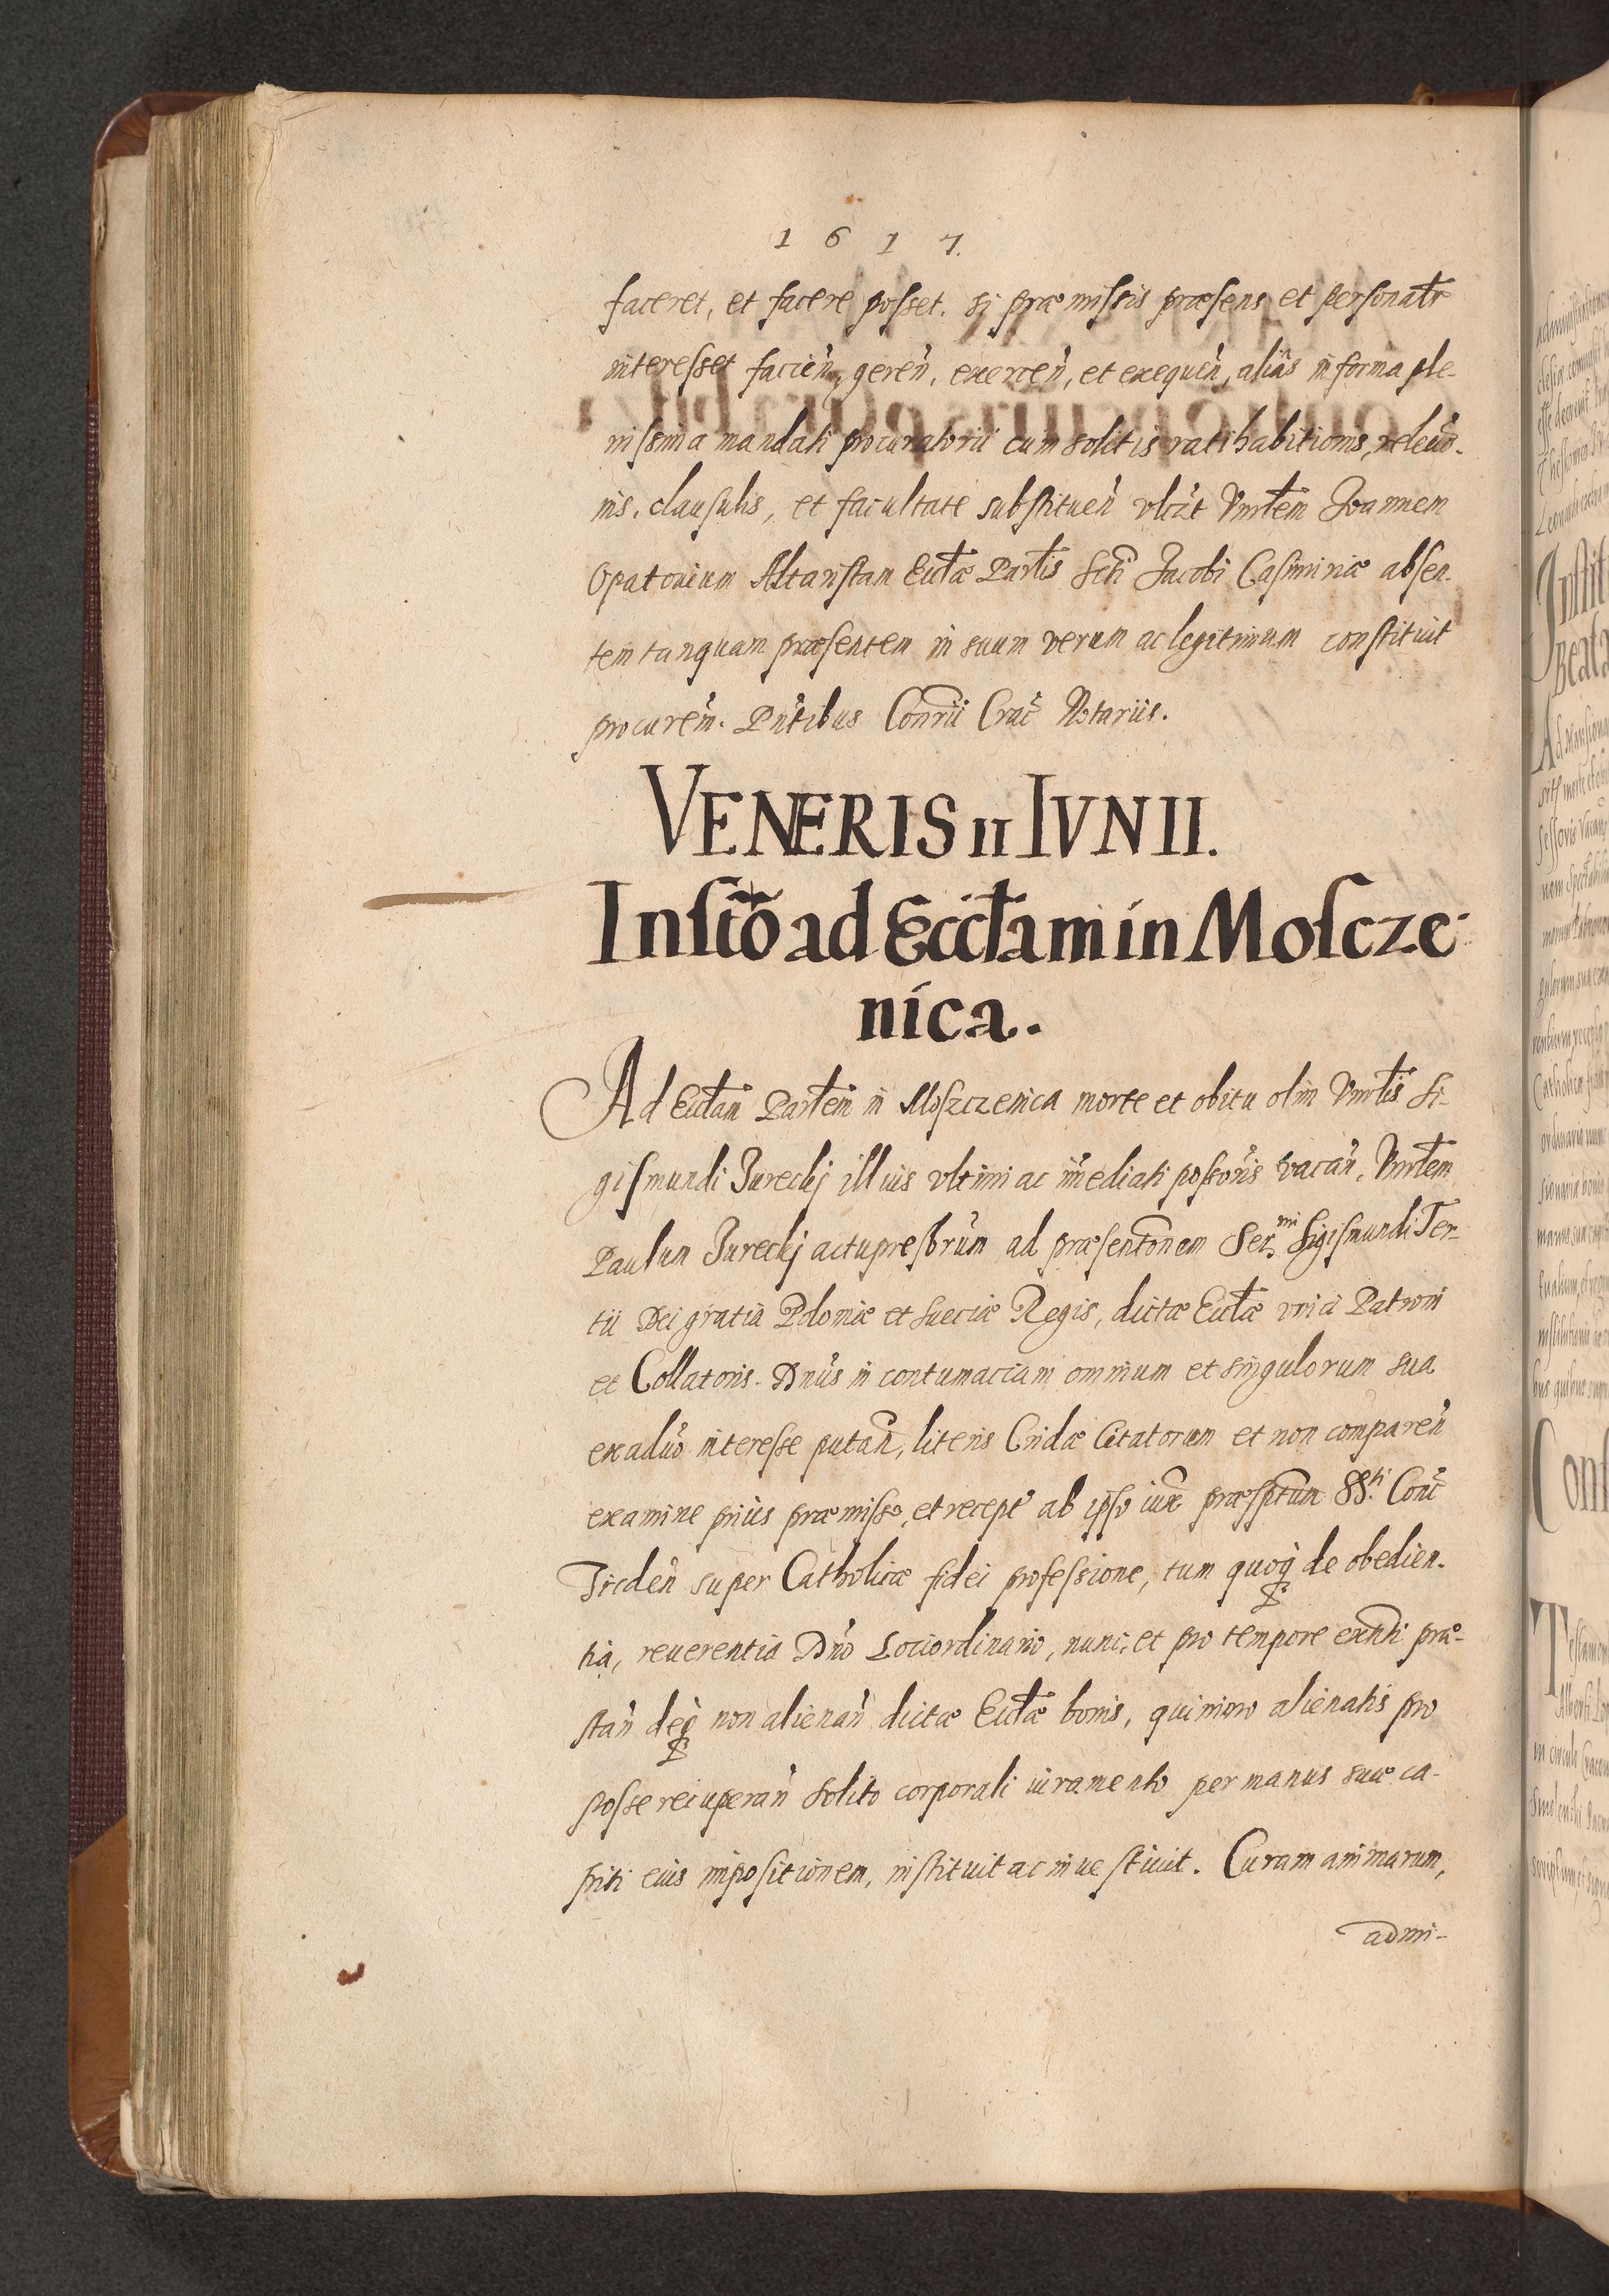 1617.
faceret, et facere posset, si præmissis præsens et personalr̃
interesset facień, gereń, exerceń, et exequeń, aliàs in forma ple-
nissima mandati procuratorii cum solitis ratihabitionis, releuõ-
nis, clausulis, et facultate substitueń vlczt Vnrłem Joannem
Opatouium Altaristam Eccłæ Parłis Scti Jacobi Casimiriæ absen-
tem tanquam præsentem in suum verum ac legitimum constituit
procurem̃. Pntibus Conrii Crac̃ Notariis.
VENERIS II IVNII.
Insctõ ad Ecctam in Moscze-
nica.
Ad Eccłam Parłem in Moszczenica morte et obitu olim Vnrłis Si-
gismundi Jurecky illius vltimi ac im̃ediati possoris vacań, Vnrłem
Paulum Jurecky actu presbrum ad præsentõnem Ser.mi Sigismundi Ter-
tii Dei gratia Poloniæ et Sueciæ Regis, dictæ Eccłæ vnici Patroni
et Collatoris. Dnus in contumaciam omnium et singulorum sua
ex aduo interesse putań, literis Cridæ Citatorum et non compareń
examine prius præmisso, et recepto ab ipso iux præsptum SS.ti Conc̃
Trideń super Catholicæ fidei professione, tum quoq̃ de obedien-
tia, reuerentia Dno Lociordinario, nunc, et pro tempore exńti præ-
stań deq̃ non alienań dictæ Eccłæ bonis, quinimo alienatis pro
posse recuperań solito corporali iuramento per manus suæ ca-
piti eius impositionem, instituit ac inuestiuit. Curam animarum,
admi-